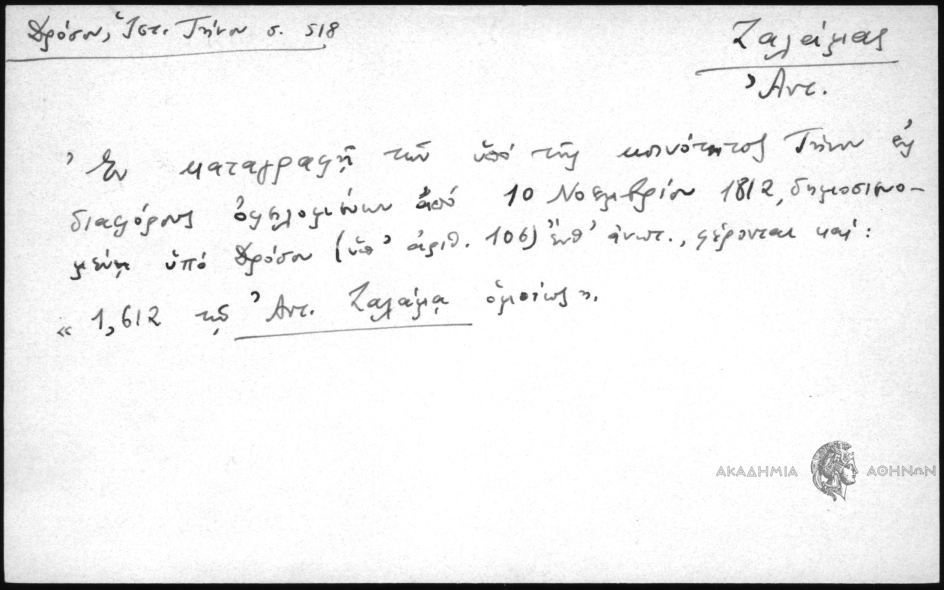 Δρόσου, Ἱστ. Τήνου σ. 518
Ζαλάμας
Ἀντ.
Ἐν καταγραφῇ τῶν ὑπό τῆς κοινότητος Τήνου εἰς
διαφόρους ὀφειλομένων ἀπό 10 Νοεμβρίου 1812, δημοσιευο-
μένῃ ὑπό Δρόσου (ὑπ' ἀριθ. 106) ἔνθ' ἀνωτ., φέρονται καί:
« 1,612 τῷ Ἀντ. Ζαλάμᾳ ὁμοίως ».
ΑΚΑΔΗΜΙΑ ΑΘΗΝΩΝ